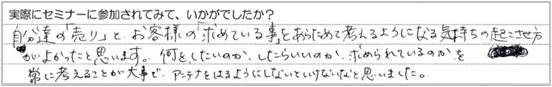 実際にセミナーに参加されてみて、いかがでしたか？
自分達の「売り」と、お客様の「求めている事」をあらためて考えるようになる気持ちの起こさせ方
がよかったと思います。何をしたいのか、したらいいのか、求められているのかを
常に考えることが大事で、アンテナをはるようにしないといけないなと思いました。